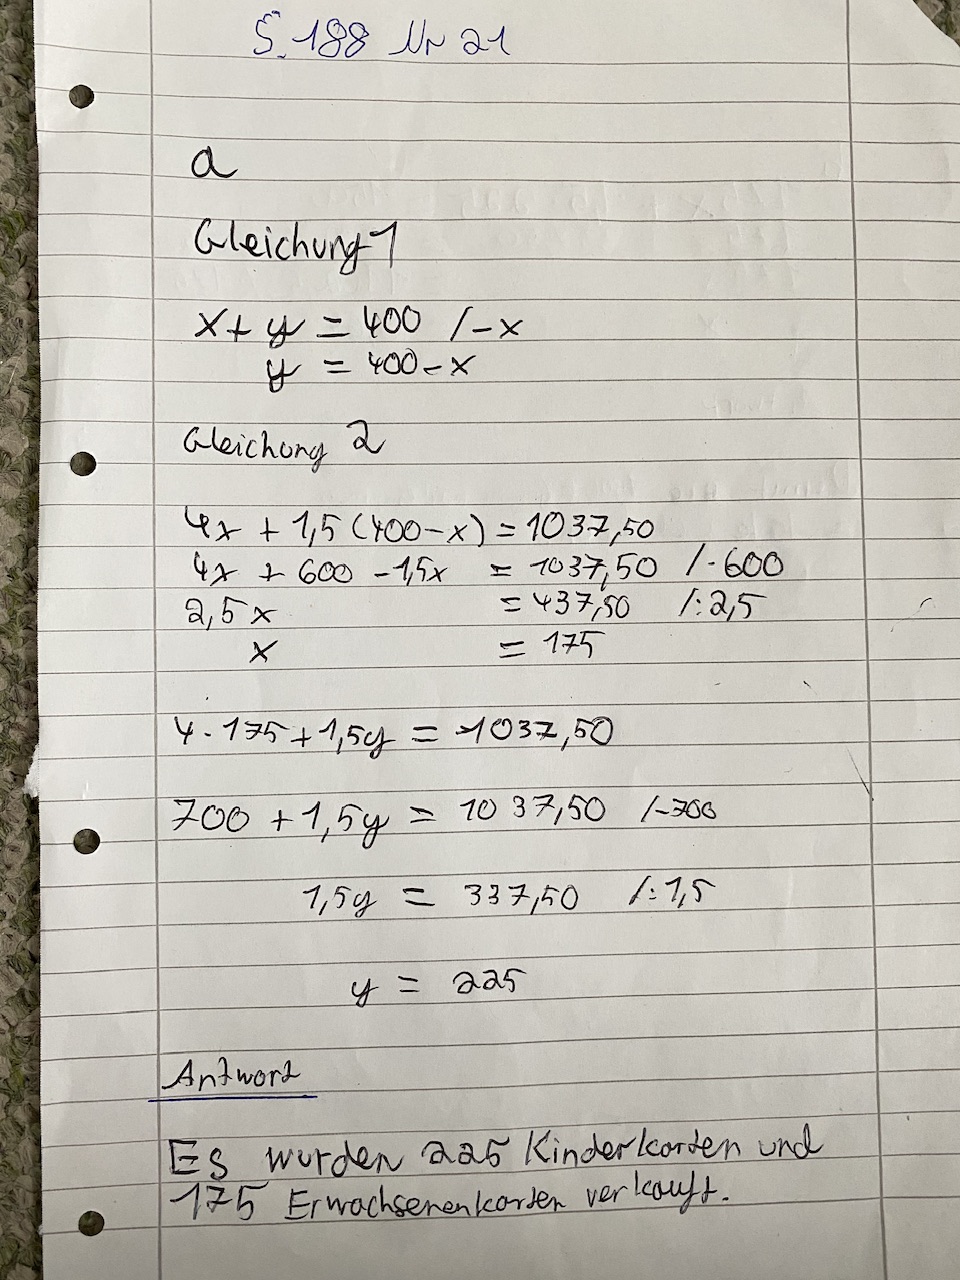 S. 188 Nr 21
a
Gleichung 1
x + y = 400 /-x
y = 400-x
Gleichung 2
4x + 1,5 (400-x) = 1037,50
4x + 600 - 1,5x = 1037,50 /-600
2,5x = 437,50 /:2,5
x = 175
4 · 175 + 1,5y = 1037,50
700 + 1,5y = 1037,50 /-700
1,5y = 337,50 /:1,5
y = 225
Antwort
Es wurden 225 Kinderkarten und
175 Erwachsenenkarten verkauft.